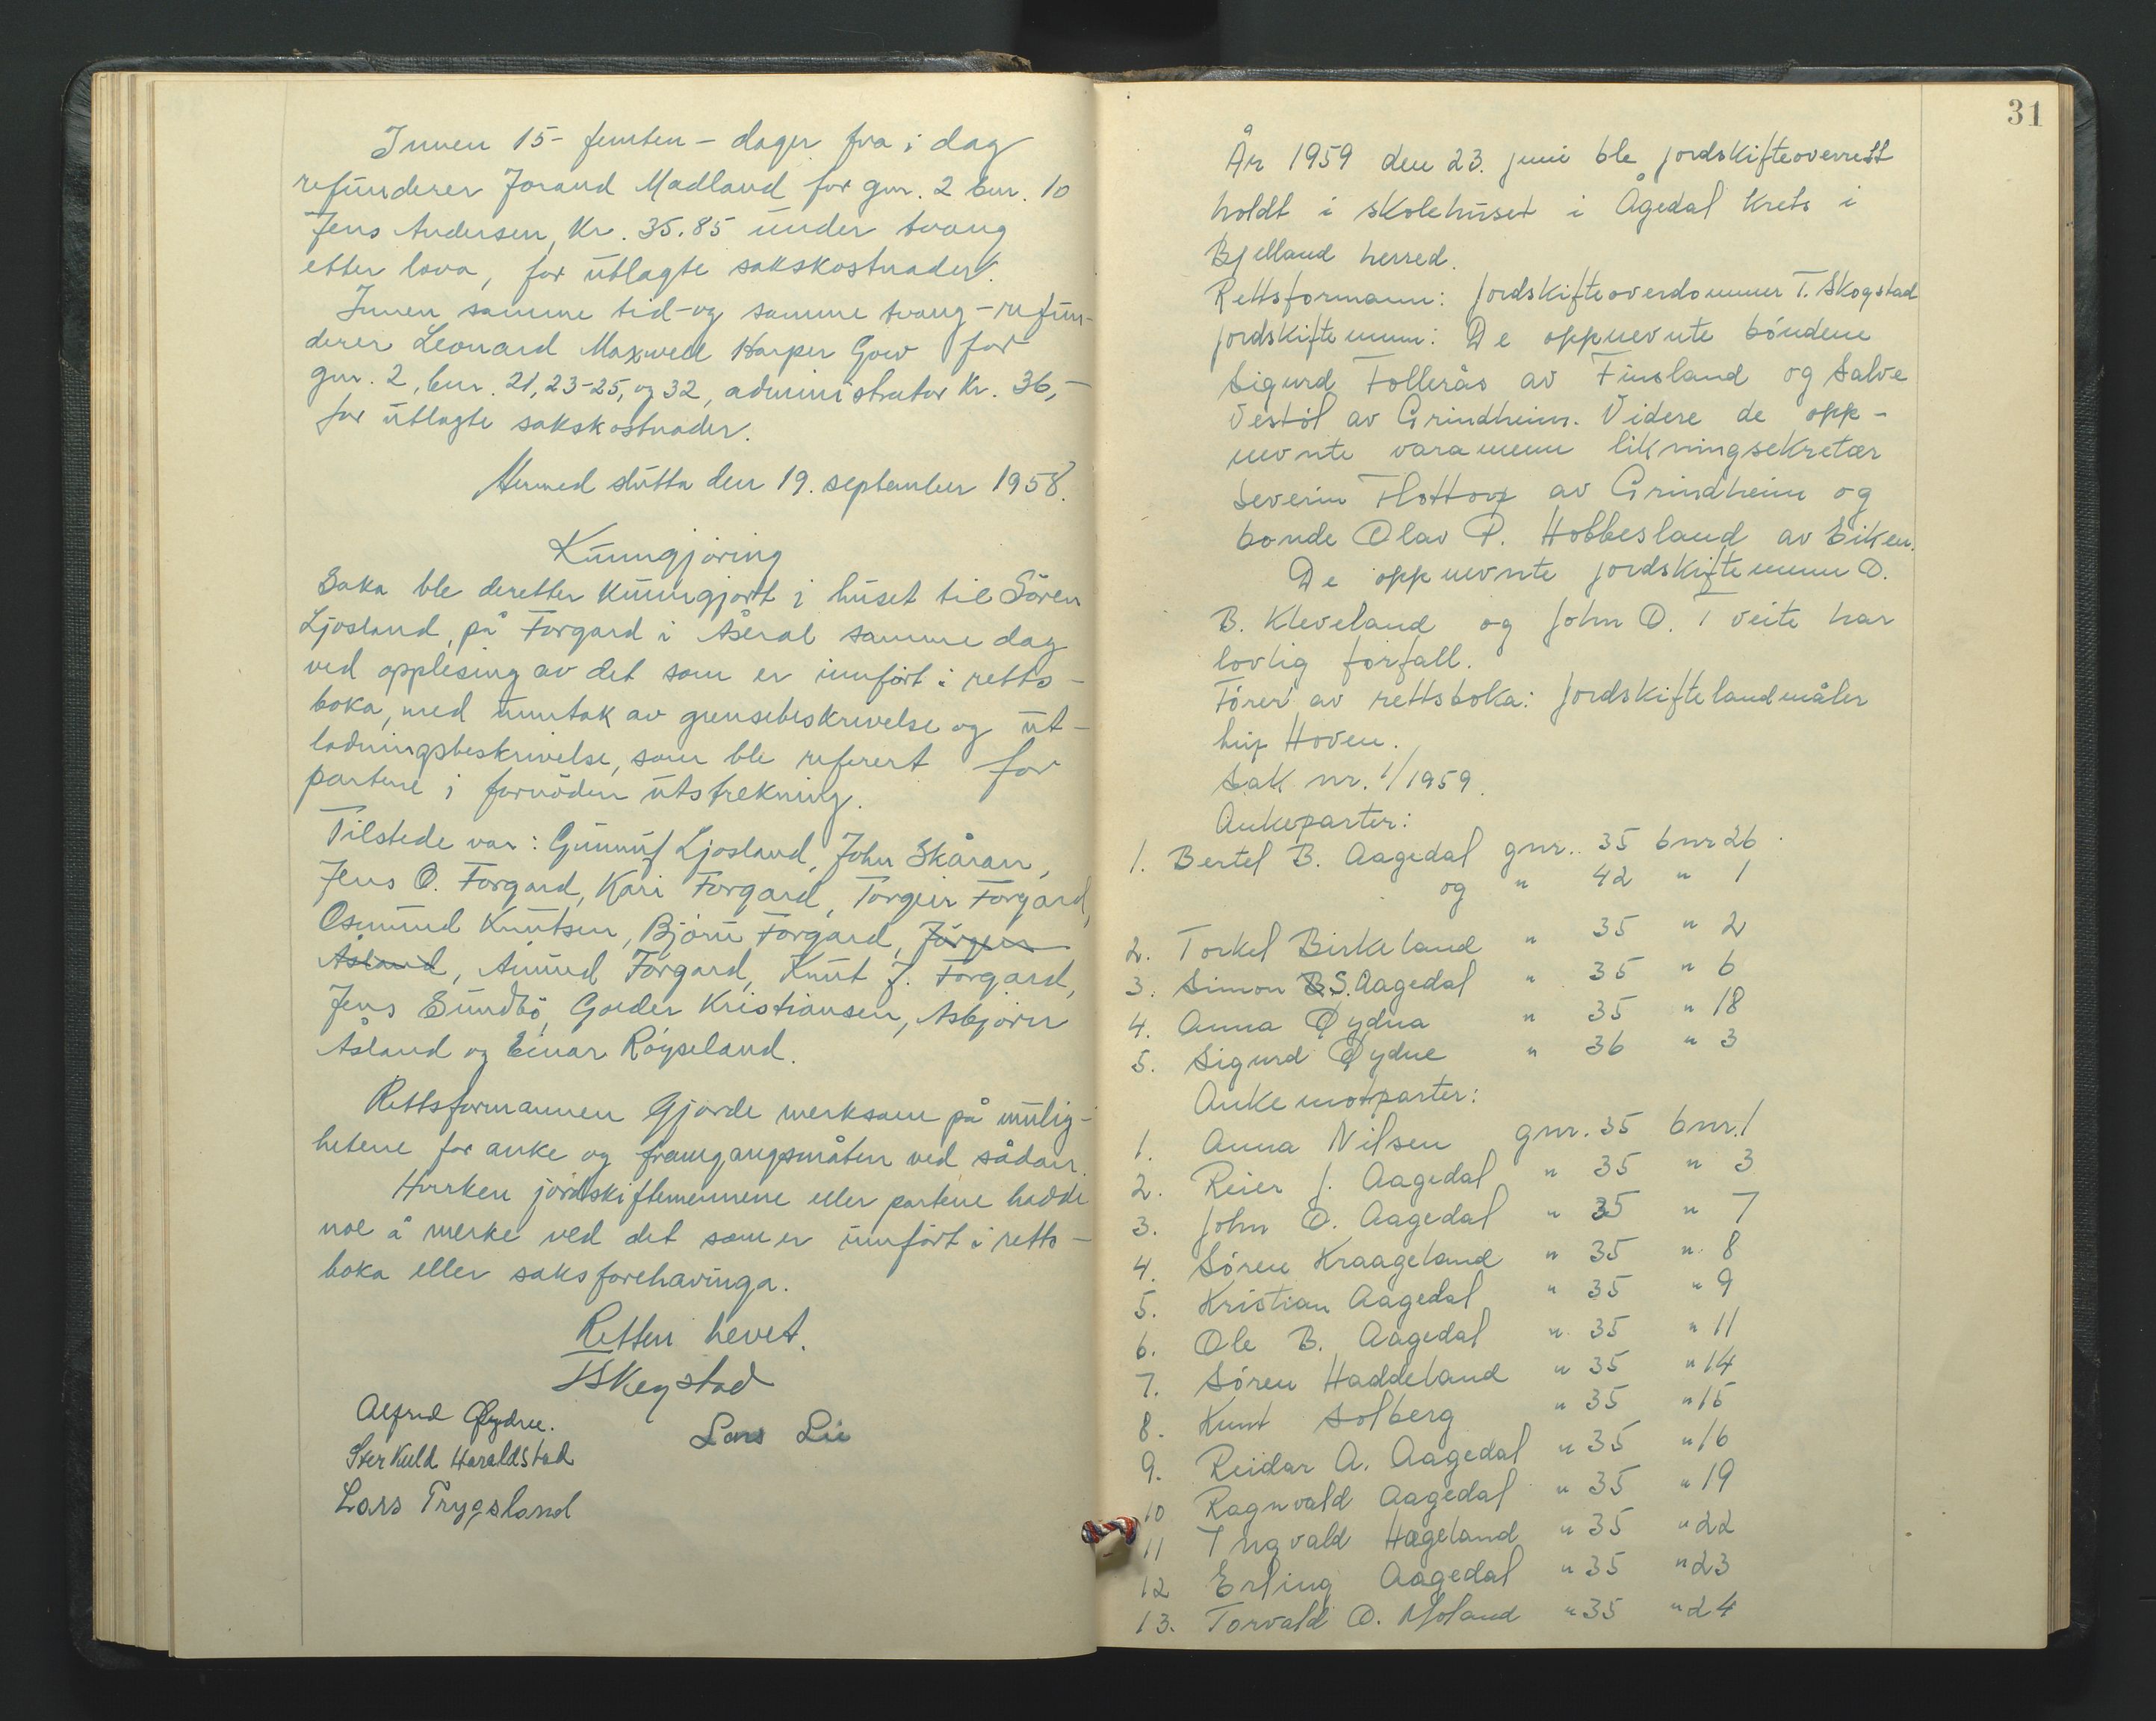 Innen 15- femten - dager fra i dag
refunderer Jorand Madland for gnr. 2 bnr. 10
Jens Andersen, Kr. 35.85 under tvang
etter lova, for utlagte sakskostnader.
Innen samme tid - og samme tvang - refun-
derer Leonard Maxwell Harper Gow for
gnr. 2, bnr. 21, 23-25, og 32, administrator Kr. 36,-
for utlagte sakskostnader.
Hermed slutta den 19. september 1958.
Kunngjøring
Saka ble deretter kunngjort i huset til Sören
Ljosland, på Forgard i Åseral samme dag
ved opplesing av det som er innført i retts-
boka, med unntak av grensebeskrivelse og ut-
lodningsbeskrivelse, som ble referert for
partene i fornöden utstrekning.
Tilstede var: Gunnuf Ljosland, John Skåran,
Jens O. Forgard, Kari Forgard, Torgeir Forgard,
Osmund Knutsen, Björn Forgard, Jörgen
Åsland, Anund Forgard, Knut J. Forgard,
Jens Sundbö, Garder Kristiansen, Asbjörn
Åsland og Einar Röyseland.
Rettsformannen gjorde merksam på mulig-
hetene for anke og framgangsmåten ved sådan.
Hverken jordskiftemennene eller partene hadde
noe å merke ved det som er innført i retts-
boka eller saksforehavinga.
Retten hevet.
TSkogstad
Alfred Øydne.
Lars Lie
Sterkuld Haraldstad
Lars Trygsland
31
År 1959 den 23. juni ble jordskifteoverrett
holdt i skolehuset i Ågedal krets i
Bjelland herred.
Rettsformann: Jordskifteoverdommer T. Skogstad
Jordskiftemenn: De oppnevnte böndene
Sigurd Follerås av Finsland og Salve
Vestöl av Grindheim. Videre de opp-
nevnte varamenn likningsekretær
Severin Flottorp av Grindheim og
bonde Olav P. Hobbesland av Eiken.
De oppnevnte jordskiftemenn O.
B. Kleveland og John O. Tveite har
lovlig forfall.
Förer av rettsboka: Jordskiftelandmåler
Leif Hoven.
Sak nr. 1/1959.
Ankeparter:
1. Bertel B. Aagedal gnr. 35 bnr 26
og " 42 " 1
2. Torkel Birkeland " 35 " 2
3. Simon B.S. Aagedal " 35 " 6
4. Anna Øydna " 35 " 18
5. Sigurd Øydne " 36 " 3
Ankemotparter:
1. Anna Nilsen gnr. 35 bnr. 1
2. Reier J. Aagedal " 35 " 3
3. John O. Aagedal " 35 " 7
4. Sören Kraageland " 35 " 8
5. Kristian Aagedal " 35 " 9
6. Ole B. Aagedal " 35 " 11
7. Sören Haddeland " 35 " 14
8. Knut Solberg " 35 " 15
9. Reidar A. Aagedal " 35 " 16
10 Ragnvald Aagedal " 35 " 19
11 Ingvald Hægeland " 35 " 22
12 Erling Aagedal " 35 " 23
13. Torvald O. Moland " 35 " 24